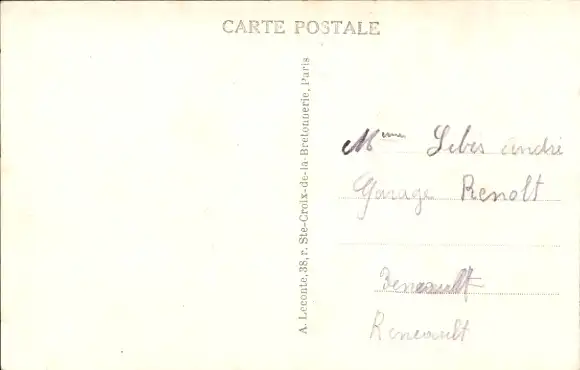 CARTE POSTALE
A. Leconte, 38, r. Ste-Croix-de-la-Bretonnerie, Paris
Mme andré
Garage Renolt
Reneault